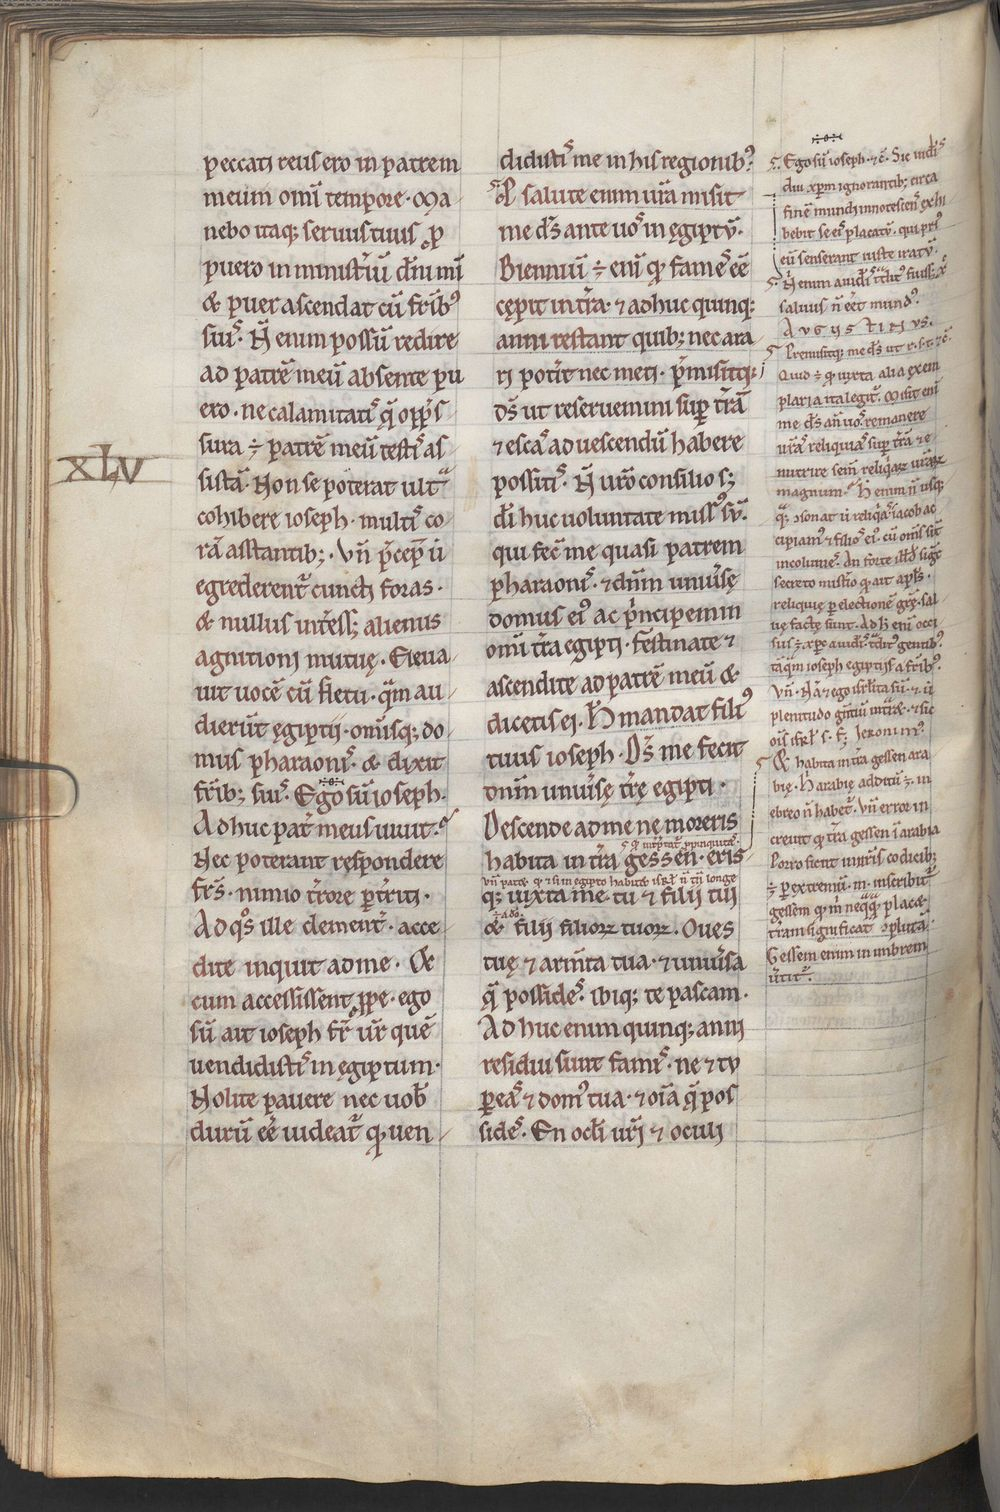 peccati reus ero in patrem
meum om̄i tempore. Ma-
nebo itaq; seruus tuus p̄
puero in ministīu dn̄i mī
& puer ascendat cū fr̄ib;
suis. N̄ enim possū redire
ad patrē meū absente pu
ero. ne calamitatis q̄ opp̄s
sura ÷ patrē meū testis as-
XLV
sistā. Non se poterat ultª
cohibere ioseph. multis co-
rā asstantib;. Vn̄ p̄cep̄ ū
egrederent᷑ cuncti foras.
& nullus int̄ess; alienus
agnitioni mutuę. Eleua-
uit uocē cū fletu. quam au-
dierūt ęgiptii. om̄isq; do-
mus pharaonis. & dixit
fr̄ib; suis. Ego sū ioseph.
Adhuc pat̄ meus uiuit.
Nec poterant respondere
fr̄s. nimio t̄rore pt̄riti.
Ad qo̊s ille clement᷑. acce-
dite inquit ad me. Et
cum accessissent ppe. ego
sū ait ioseph fr̄ ur̄ quē
uendidistis in ęgiptum.
Nolite pauere nec uob̄
durū eē uideat᷑ q̄ uen-
didistis me in his regionib;
P̄ salute enim urā misit
me ds̄ ante uos in ęgiptū.
Bienniū ÷ eni q̄ fames eē
cępit in t̄ra. ⁊ adhuc quinq;
anni restant quib; nec ara-
ri pot̄it nec meti. p̄misitq;
ds̄ ut reseruemini sup t̄rā
⁊ escas ad uescendū habere
possitis. N̄ ur̄o consilio s;
dī huc uoluntate missus sū.
qui fec̄ me quasi patrem
pharaonis. ⁊ dnm̄ uniu̇sę
domus eius ac p̄ncipem in
om̄i t̄ra egipti. Festinate ⁊
ascendite ad patrē meū &
dicetis ei. H̄ mandat filius
tuus ioseph. Ds̄ me fecit
dnm̄ uniu̇sę t̄rę egipti.
Descende ad me ne moreris
habita in t̄ra gessen. eris-
q; iuxta me tu & filii tui
& filii filioꝝ tuoꝝ. Oues
tuę & arm̄ta tua. ⁊ uniu̇sa
q̄ possides. ibiq; te pascam.
Adhuc enim quinq; anni
residui sunt famis. ne ⁊ tu
pereas ⁊ domus tua. ⁊ oīa q̄ pos-
sides. En oc̄li ur̄i ⁊ oculi
Ego sū ioseph. ⁊c̄. Sic iudeis
diu xp̄m ignorantib; circa
finē mundi innotescens exhi-
bebit se eis placatū. qui prius
eū senserant iuste iratū.
saluus n̄ eēt mundus.
AVGUSTINVS.
Premisitq; me ds̄ ut r. s. t. ⁊c̄.
Quid ÷ q̄ iuxta alia exem
plaria ita legit᷑. Misit eni
me ds̄ an̄ uos. remanere
ur̄as reliquias sup t̄rā ⁊ e-
nutrire
magnum. H̄ enim n̄ usq;
q̄q; ↄsonat ū reliq̄as iacob ac-
cipiamus ⁊ filios eius. cū om̄s sīt
incolumes. An forte illd̄ sigᷓt
secreto mistīo q̄ ait apl̄s.
reliquię p electionē grę̄. sal-
uę factę sunt. Ad h̄ eni occi-
sus ÷ xp̄c a iudeis t̄dit᷑ gentib;
tāq̄m ioseph egiptiis a fr̄ib;.
Vn̄. Nā ⁊ ego isrl̄ita sū. ⁊ ū
plenitudo gn̄tiū int̄ret. ⁊ sic
oīs isrl̄ s. f; Ieronimus.
Et habita in t̄ra gessen ara-
bię. H̄ arabię additū ÷. in
ebreo n̄ habet᷑. Vn̄ error in-
creuit q̄ t̄ra gessen ī arabia
Porro sicut in nr̄is codicib;
÷ p extremū. m. inscribit᷑
gessem q̄ m̄ neq̄q̄ placet
t̄ram significat ↄplutā
Gessem enim in imbrem
ūtit᷑.